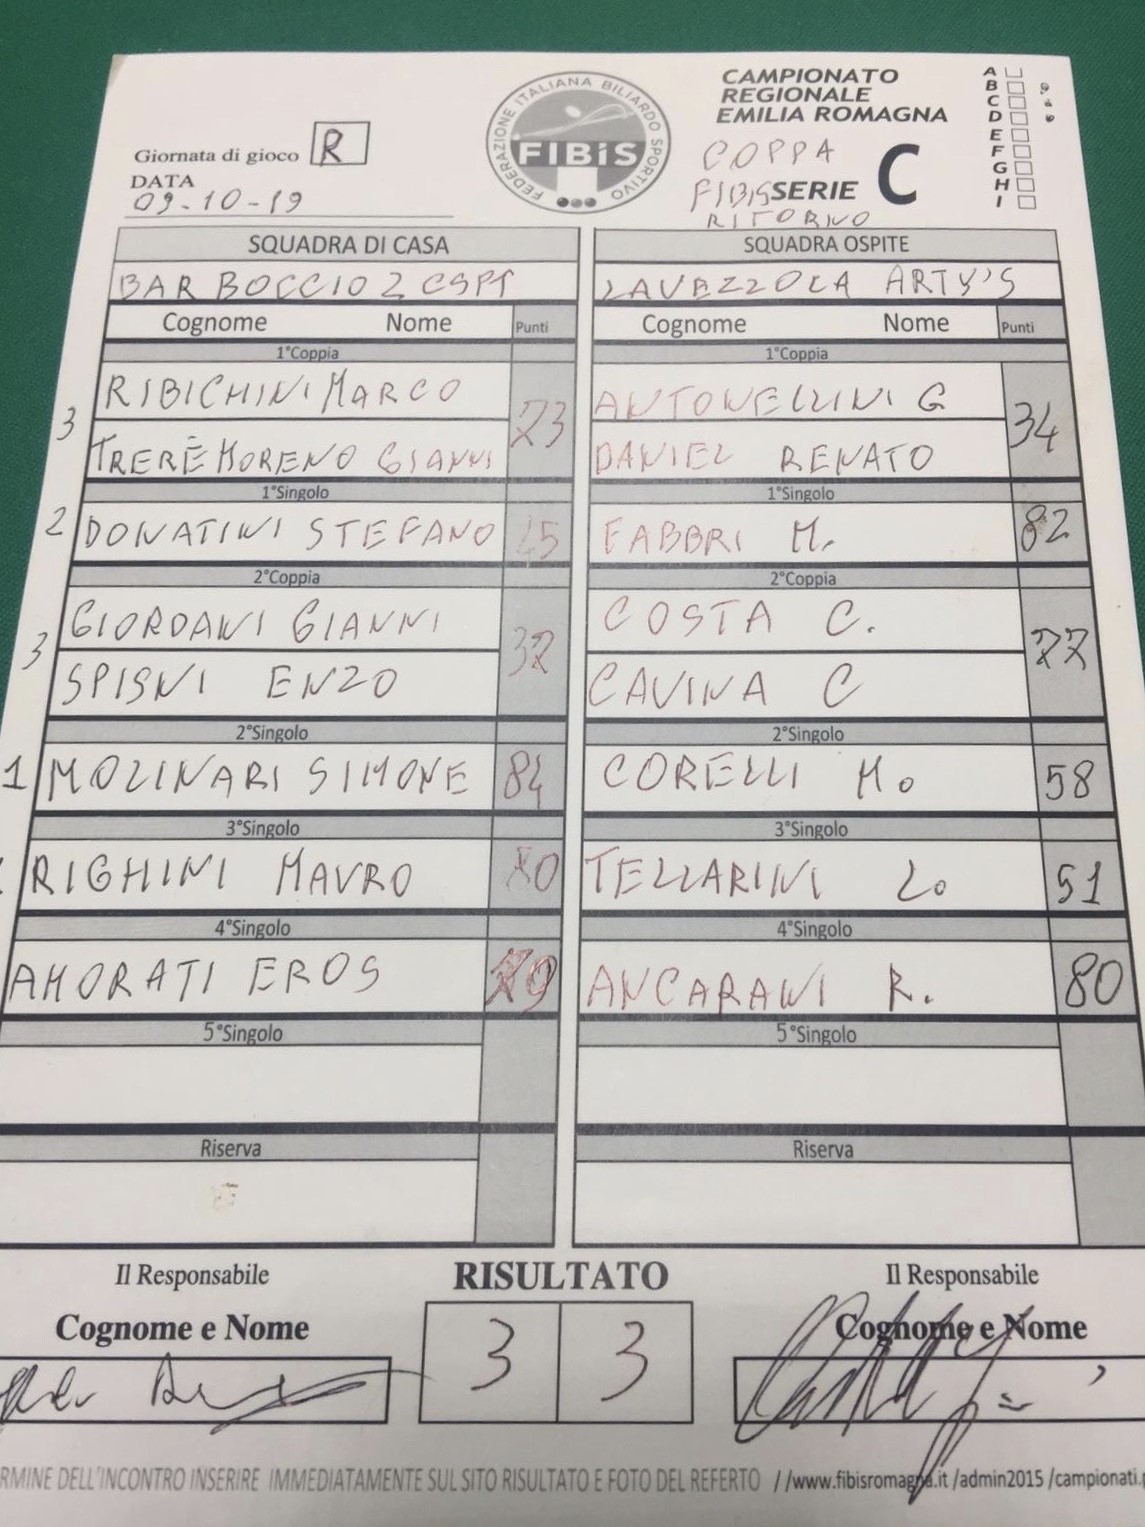 CAMPIONATO
REGIONALE
EMILIA ROMAGNA
COPPA
FIBIS SERIE C
RITORNO
A
B
C
D
E
F
G
H
I
FEDERAZIONE ITALIANA BILIARDO SPORTIVO
FIBiS
Giornata di gioco R
DATA
09-10-19
SQUADRA DI CASA SQUADRA OSPITE
BAR BOCCIO 2 CSPT LAVEZZOLA ARTY'S
Cognome Nome Punti Cognome Nome Punti
1°Coppia 1°Coppia
3 RIBICHINI MARCO 73 ANTONELLINI G 34
TRERÈ MORENO GIANNI DANIEL RENATO
1°Singolo 1°Singolo
2 DONATINI STEFANO FABBRI M. 82
2°Coppia 2°Coppia
3 GIORDANI GIANNI 37 COSTA C. 77
SPISNI ENZO CAVINA C
2°Singolo 2°Singolo
1 MOLINARI SIMONE 84 CORELLI M. 58
3°Singolo 3°Singolo
RIGHINI MAURO 80 TELLARINI L. 51
4°Singolo 4°Singolo
AMORATI EROS ANCARANI R. 80
5°Singolo 5°Singolo
Riserva Riserva
Il Responsabile RISULTATO Il Responsabile
Cognome e Nome 3 3 Cognome e Nome
RMINE DELL'INCONTRO INSERIRE IMMEDIATAMENTE SUL SITO RISULTATO E FOTO DEL REFERTO //www.fibisromagna.it /admin2015 /campionati.